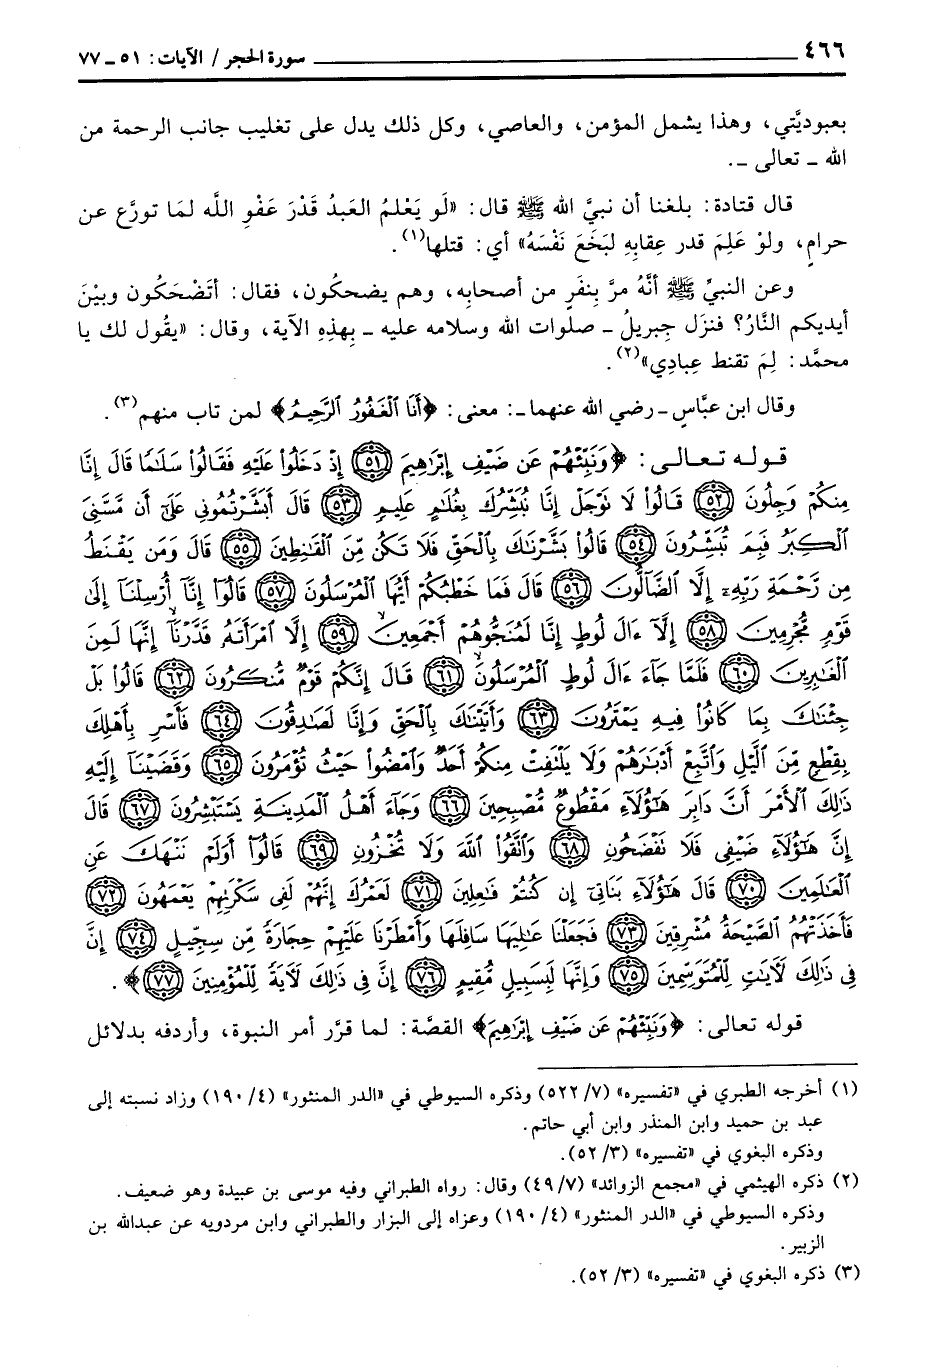 ٤٦٦ سورة الحجر / الآيات: ٥١ ـ ٧٧
بعبوديَّتي، وهذا يشمل المؤمن، والعاصي، وكل ذلك يدل على تغليب جانب الرحمة من
الله ـ تعالى ـ.
قال قتادة: بلغنا أن نبيَّ الله ﷺ قال: «لَو يَعْلمُ العَبدُ قَدْرَ عَفْوِ اللَّه لمَا تورَّع عن
حرامٍ، ولوْ عَلِمَ قدر عِقابِهِ لبَخَعَ نَفْسَهُ» أي: قتلها(١).
وعن النبيِّ ﷺ أنَّهُ مرَّ بِنفَرٍ من أصحابِه، وهم يضحكُون، فقال: أتَضْحَكُون وبيْنَ
أيديكم النَّارُ؟ فنزَل جِبريلُ ـ صلوات الله وسلامه عليه ـ بِهذِهِ الآية، وقال: «يقُول لك يا
محمَّد: لِمَ تقنط عِبادِي»(٢).
وقال ابن عبَّاسٍ ـ رضي الله عنهما ـ: معنى: ﴿أَنَا ٱلْغَفُورُ ٱلرَّحِيمُ﴾ لمن تاب منهم(٣).
قوله تعالى: ﴿وَنَبِّئْهُمْ عَن ضَيْفِ إِبْرَٰهِيمَ ٥١ إِذْ دَخَلُوا۟ عَلَيْهِ فَقَالُوا۟ سَلَٰمًا قَالَ إِنَّا
مِنكُمْ وَجِلُونَ ٥٢ قَالُوا۟ لَا تَوْجَلْ إِنَّا نُبَشِّرُكَ بِغُلَٰمٍ عَلِيمٍ ٥٣ قَالَ أَبَشَّرْتُمُونِى عَلَىٰٓ أَن مَّسَّنِىَ
ٱلْكِبَرُ فَبِمَ تُبَشِّرُونَ ٥٤ قَالُوا۟ بَشَّرْنَٰكَ بِٱلْحَقِّ فَلَا تَكُن مِّنَ ٱلْقَٰنِطِينَ ٥٥ قَالَ وَمَن يَقْنَطُ
مِن رَّحْمَةِ رَبِّهِۦٓ إِلَّا ٱلضَّآلُّونَ ٥٦ قَالَ فَمَا خَطْبُكُمْ أَيُّهَا ٱلْمُرْسَلُونَ ٥٧ قَالُوٓا۟ إِنَّآ أُرْسِلْنَآ إِلَىٰ
قَوْمٍ مُّجْرِمِينَ ٥٨ إِلَّآ ءَالَ لُوطٍ إِنَّا لَمُنَجُّوهُمْ أَجْمَعِينَ ٥٩ إِلَّا ٱمْرَأَتَهُۥ قَدَّرْنَآ إِنَّهَا لَمِنَ
ٱلْغَٰبِرِينَ ٦٠ فَلَمَّا جَآءَ ءَالَ لُوطٍ ٱلْمُرْسَلُونَ ٦١ قَالَ إِنَّكُمْ قَوْمٌ مُّنكَرُونَ ٦٢ قَالُوا۟ بَلْ
جِئْنَٰكَ بِمَا كَانُوا۟ فِيهِ يَمْتَرُونَ ٦٣ وَأَتَيْنَٰكَ بِٱلْحَقِّ وَإِنَّا لَصَٰدِقُونَ ٦٤ فَأَسْرِ بِأَهْلِكَ
بِقِطْعٍ مِّنَ ٱلَّيْلِ وَٱتَّبِعْ أَدْبَٰرَهُمْ وَلَا يَلْتَفِتْ مِنكُمْ أَحَدٌ وَٱمْضُوا۟ حَيْثُ تُؤْمَرُونَ ٦٥ وَقَضَيْنَآ إِلَيْهِ
ذَٰلِكَ ٱلْأَمْرَ أَنَّ دَابِرَ هَٰٓؤُلَآءِ مَقْطُوعٌ مُّصْبِحِينَ ٦٦ وَجَآءَ أَهْلُ ٱلْمَدِينَةِ يَسْتَبْشِرُونَ ٦٧ قَالَ
إِنَّ هَٰٓؤُلَآءِ ضَيْفِى فَلَا تَفْضَحُونِ ٦٨ وَٱتَّقُوا۟ ٱللَّهَ وَلَا تُخْزُونِ ٦٩ قَالُوٓا۟ أَوَلَمْ نَنْهَكَ عَنِ
ٱلْعَٰلَمِينَ ٧٠ قَالَ هَٰٓؤُلَآءِ بَنَاتِىٓ إِن كُنتُمْ فَٰعِلِينَ ٧١ لَعَمْرُكَ إِنَّهُمْ لَفِى سَكْرَتِهِمْ يَعْمَهُونَ ٧٢
فَأَخَذَتْهُمُ ٱلصَّيْحَةُ مُشْرِقِينَ ٧٣ فَجَعَلْنَا عَٰلِيَهَا سَافِلَهَا وَأَمْطَرْنَا عَلَيْهِمْ حِجَارَةً مِّن سِجِّيلٍ ٧٤ إِنَّ
فِى ذَٰلِكَ لَءَايَٰتٍ لِّلْمُتَوَسِّمِينَ ٧٥ وَإِنَّهَا لَبِسَبِيلٍ مُّقِيمٍ ٧٦ إِنَّ فِى ذَٰلِكَ لَءَايَةً لِّلْمُؤْمِنِينَ ٧٧﴾.
قوله تعالى: ﴿وَنَبِّئْهُمْ عَن ضَيْفِ إِبْرَٰهِيمَ﴾ القصَّة: لما قرَّر أمر النبوة، وأردفه بدلائل
(١) أخرجه الطبري في «تفسيره» (٧/ ٥٢٢) وذكره السيوطي في «الدر المنثور» (٤/ ١٩٠) وزاد نسبته إلى
عبد بن حميد وابن المنذر وابن أبي حاتم.
وذكره البغوي في «تفسيره» (٣/ ٥٢).
(٢) ذكره الهيثمي في «مجمع الزوائد» (٧/ ٤٩) وقال: رواه الطبراني وفيه موسى بن عبيدة وهو ضعيف.
وذكره السيوطي في «الدر المنثور» (٤/ ١٩٠) وعزاه إلى البزار والطبراني وابن مردويه عن عبدالله بن
الزبير.
(٣) ذكره البغوي في «تفسيره» (٣/ ٥٢).